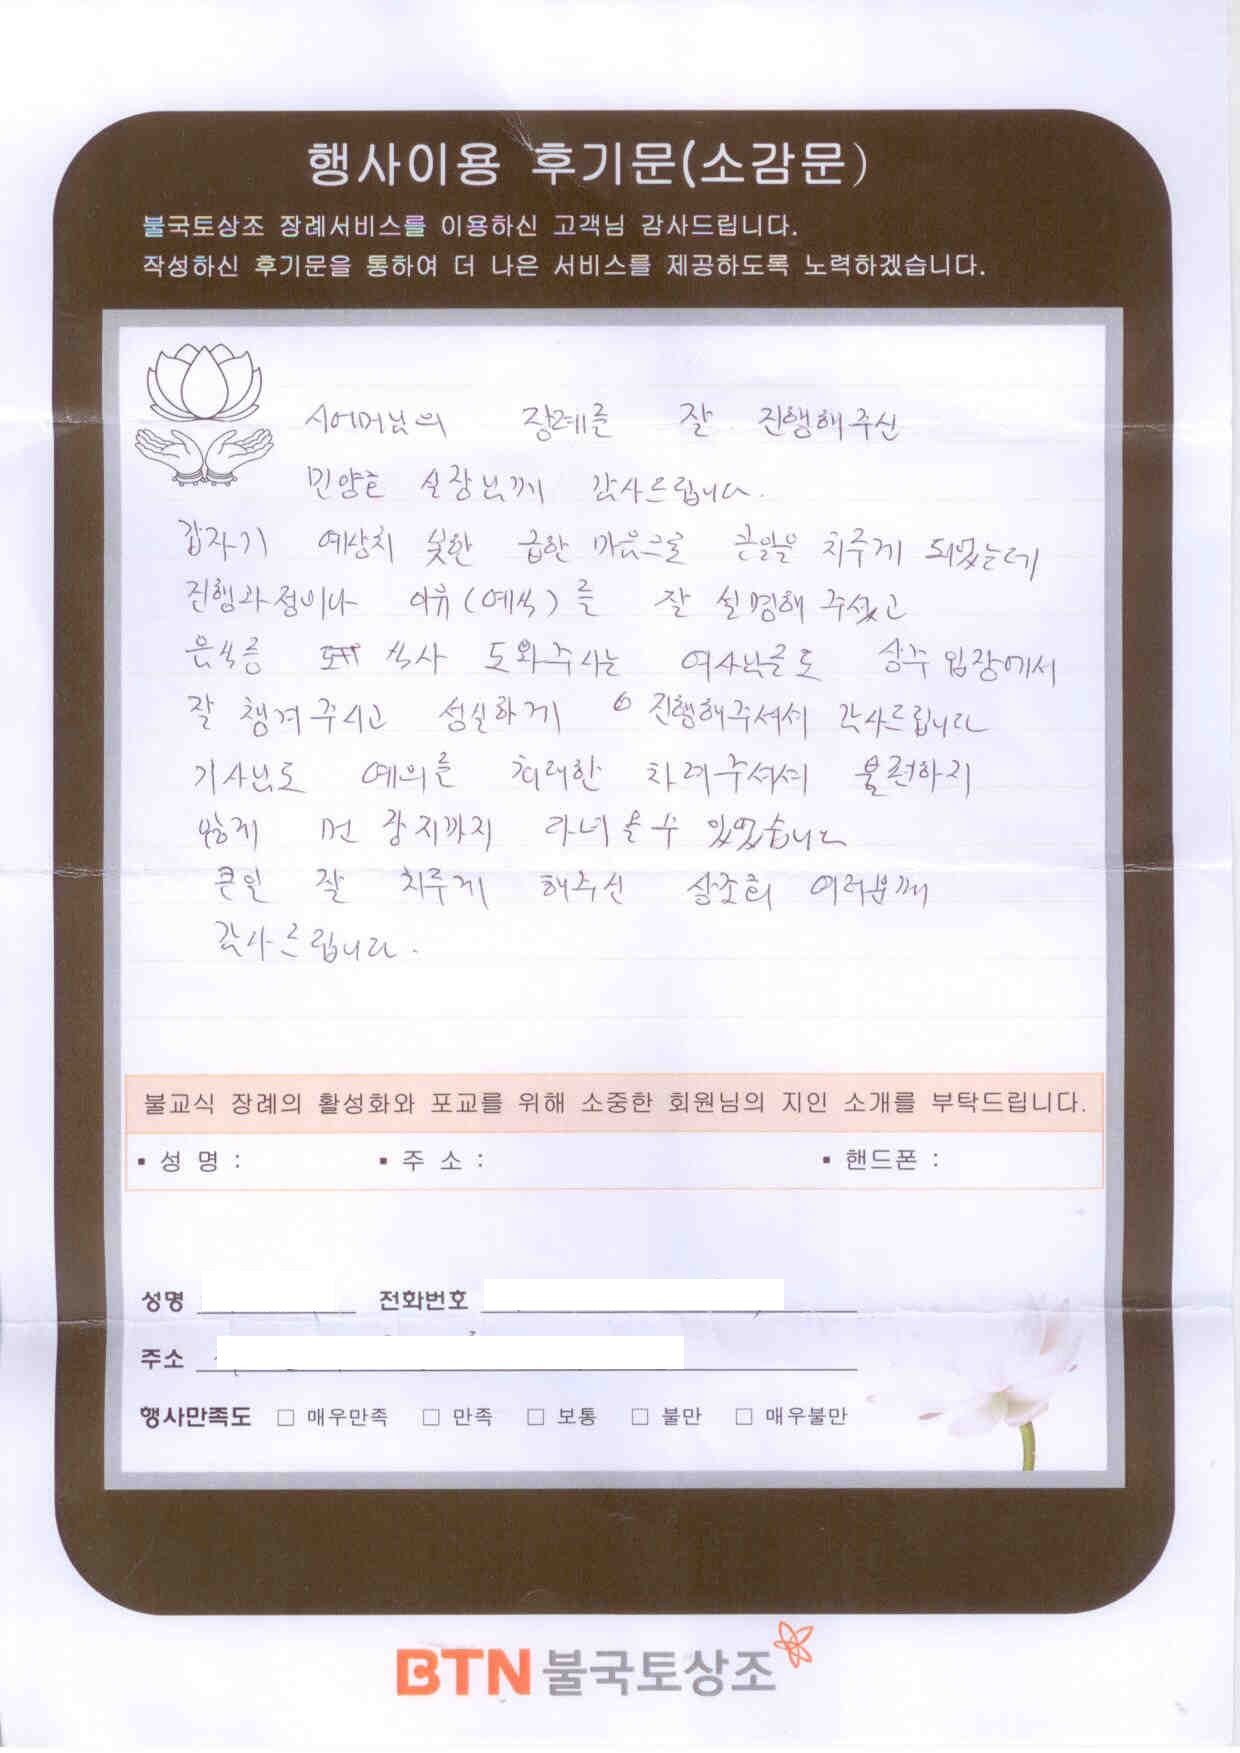 행사이용 후기문(소감문)
불국토상조 장례서비스를 이용하신 고객님 감사드립니다.
작성하신 후기문을 통하여 더 나은 서비스를 제공하도록 노력하겠습니다.
시어머님의 장례를 잘 진행해주신
민양호 실장님께 감사드립니다.
갑자기 예상치 못한 급한 마음으로 큰일을 치루게 되었는데
진행과정이나 이유(예식)를 잘 설명해 주셨고
음식등 식사 도와주시는 여사님들도 상주입장에서
잘 챙겨주시고 성실하게 진행해주셔서 감사드립니다
기사님도 예의를 최대한 차려주셔서 불편하지
않게 먼 장지까지 다녀올 수 있었습니다
큰일 잘 치루게 해주신 상조회 여러분께
감사드립니다.
불교식 장례의 활성화와 포교를 위해 소중한 회원님의 지인 소개를 부탁드립니다.
▪ 성 명 : ▪ 주 소 : ▪ 핸드폰 :
성명 전화번호
주소
행사만족도 □ 매우만족 □ 만족 □ 보통 □ 불만 □ 매우불만
BTN 불국토상조